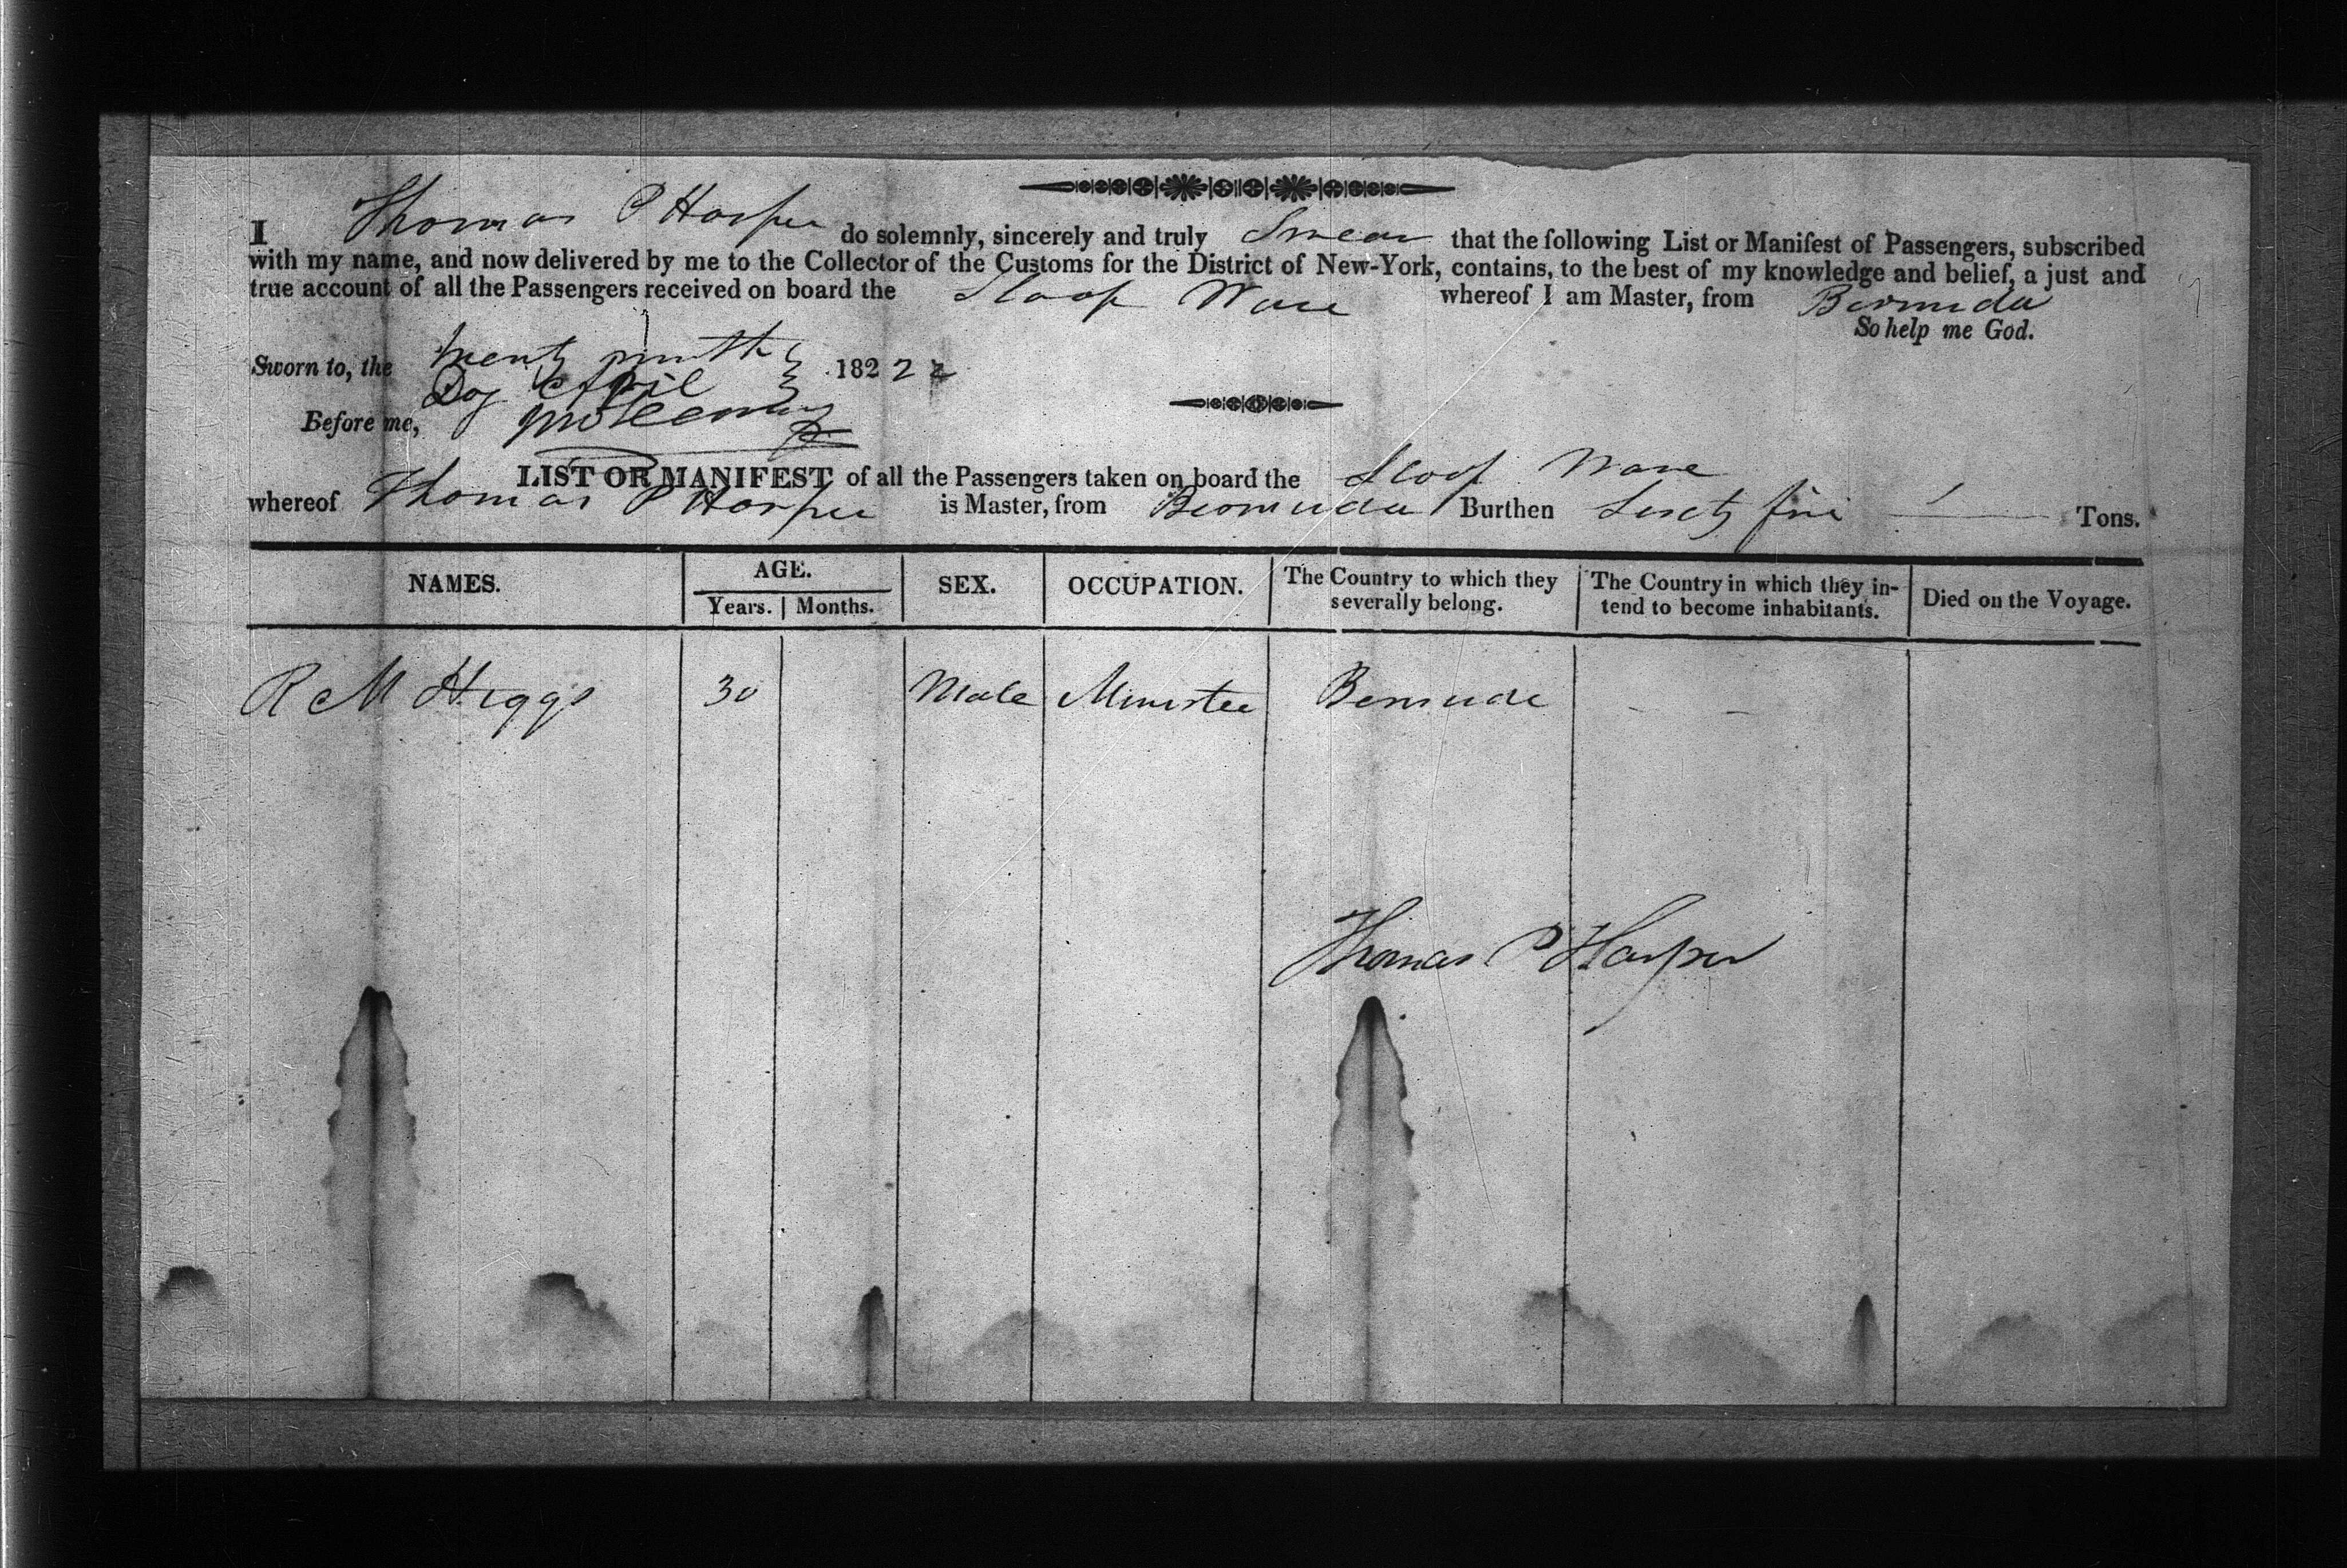 I Thomas P Harper do solemnly, sincerely and truly Swear that the following List or Manifest of Passengers, subscribed
with my name, and now delivered by me to the Collector of the Customs for the District of New-York, contains, to the best of my knowledge and belief, a just and
true account of all the Passengers received on board the Sloop Wave whereof I am Master, from Bermuda
So help me God.
Sworn to, the Twenty ninth 182 2
Day April
Before me,
LIST OR MANIFEST of all the Passengers taken on board the Sloop Wave
whereof Thomas P Harper is Master, from Bermuda Burthen Sixty five Tons.
NAMES. AGE. SEX. OCCUPATION. The Country to which they severally belong. The Country in which they intend to become inhabitants. Died on the Voyage.
Years. Months.
R M Higgs 30 Male Minister Bermuda - -
Thomas P Harper